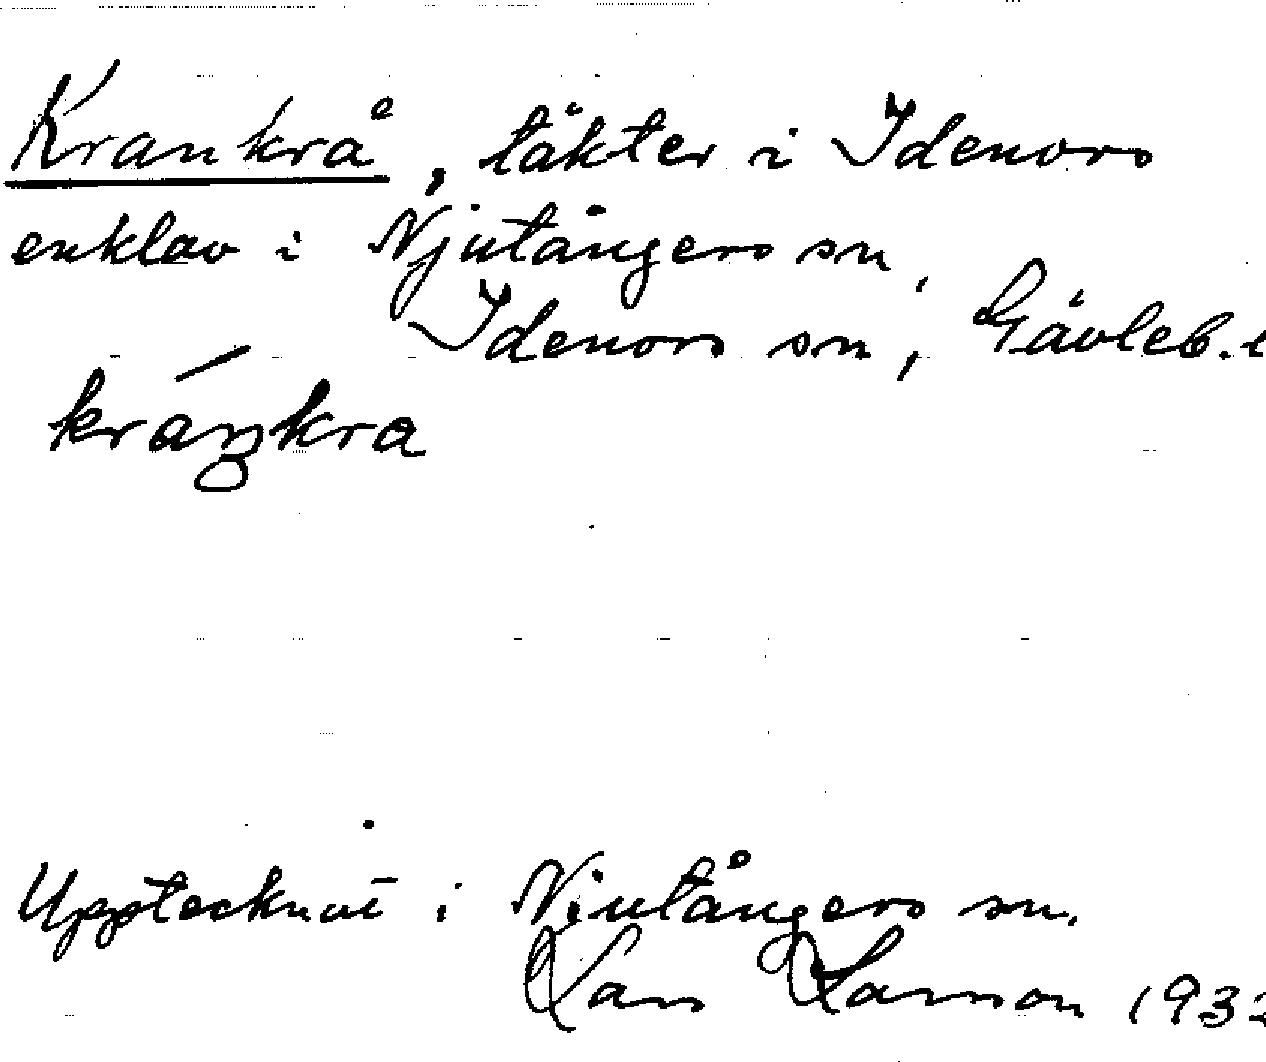 Krankrå, täkter i Idenors
enklav i Njutångers sn,
Idenors sn, Gävleb.
kráŋkra
Upptecknat i Njutångers sn.
Lars Larsson